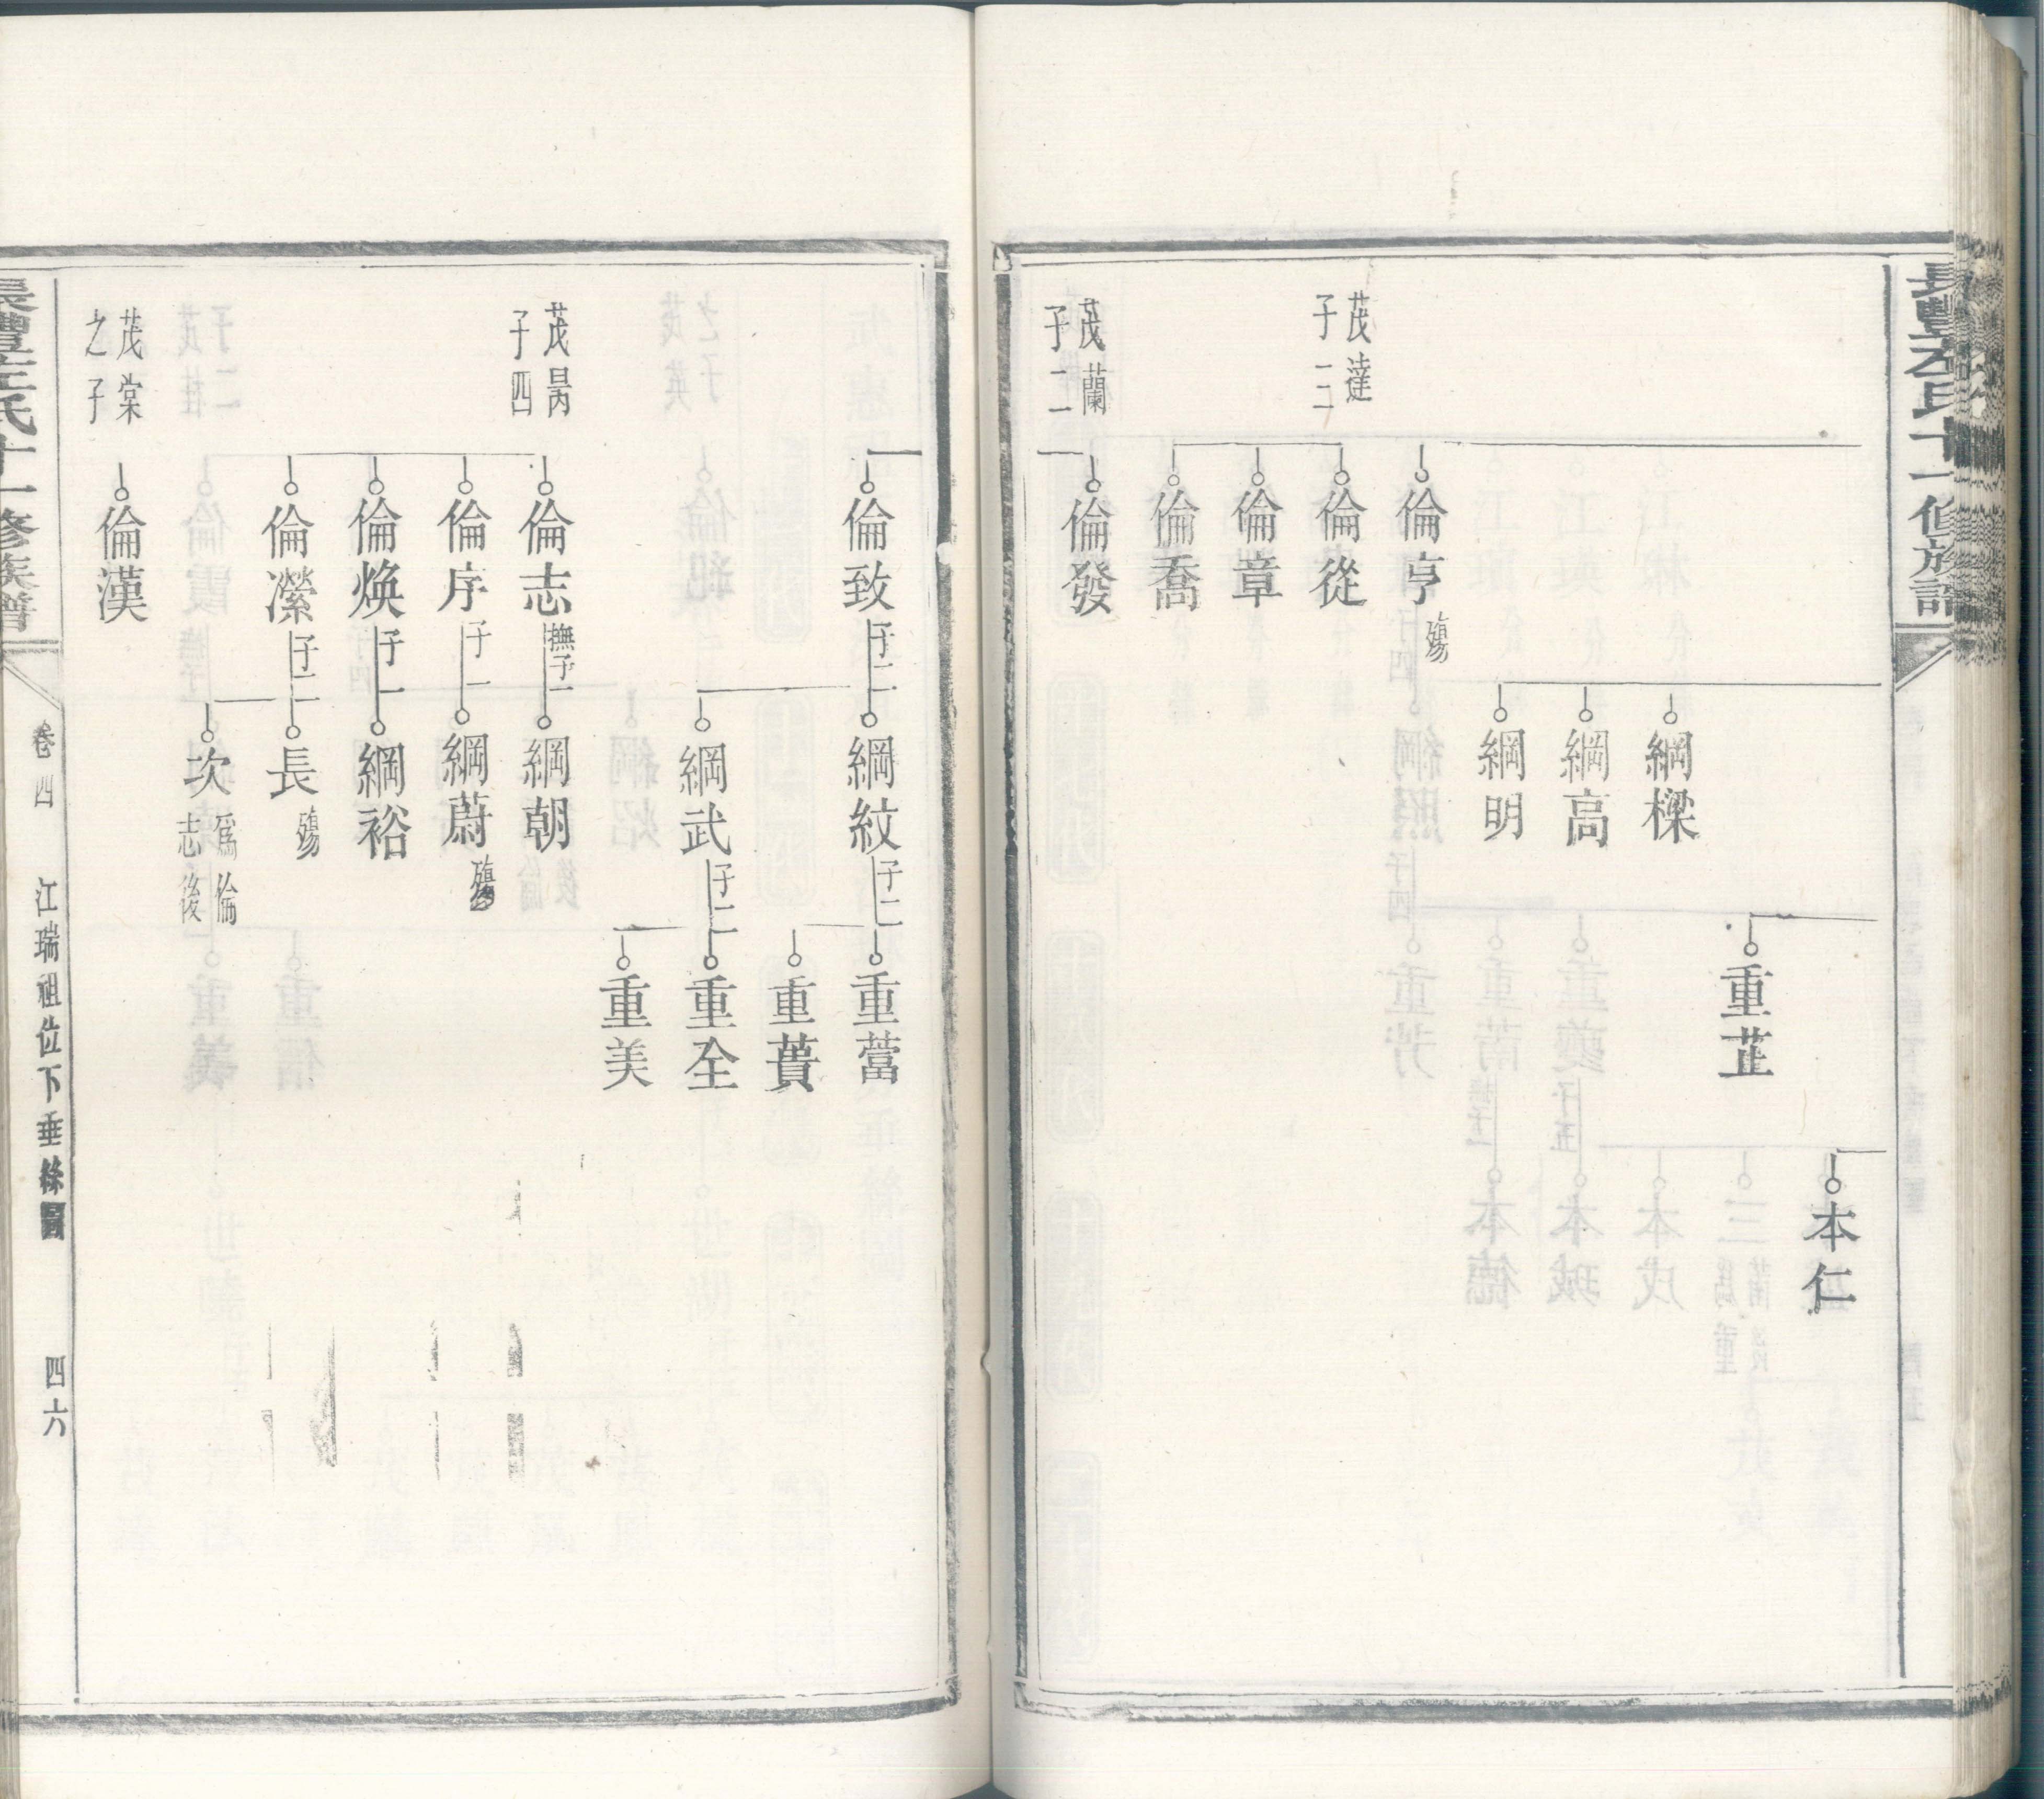 長豐左氏十一修族譜
本仁
重芷
綱樑
綱高
綱明
倫亨 殤
茂達
子三
倫從
倫章
倫喬
茂蘭
子二
倫發
倫致 子二
綱紋 子二
重蕾
重蕡
綱武 子二
重全
重美
茂昺
子四
倫志 撫子一
綱朝
倫序 子一
綱蔚 殤
倫煥 子一
綱裕
倫瀠 子二
長 殤
次 爲倫
志後
茂棠
之子
倫漢
長豐左氏十一修族譜
卷四 江瑞祖位下垂絲圖 四六